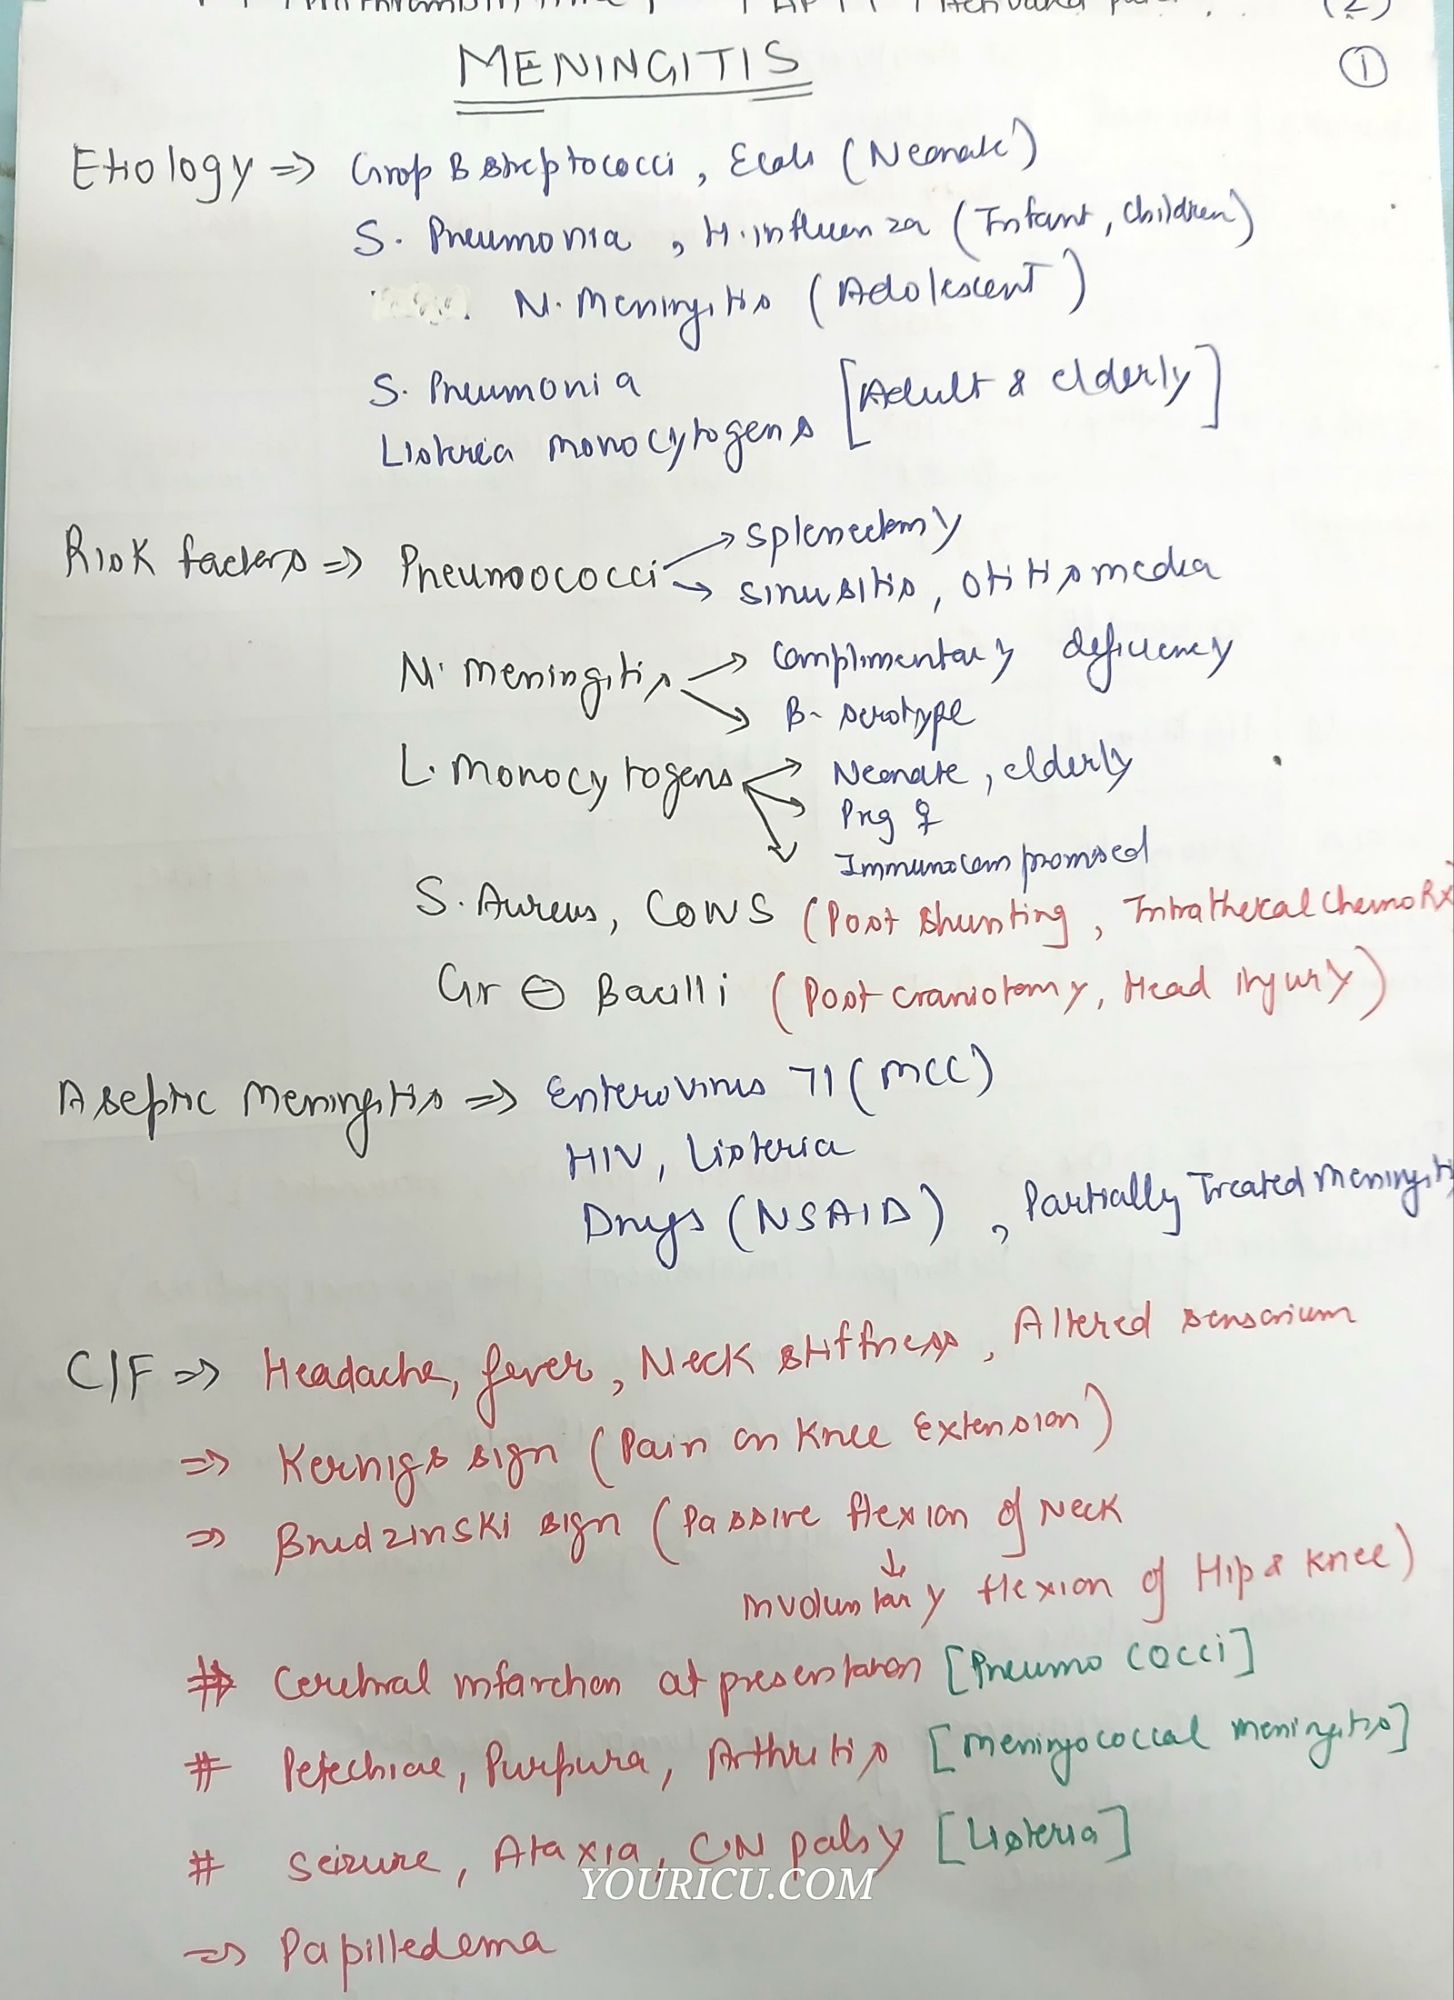 (2)
MENINGITIS
1
Etiology => Grop B streptococci, Ecoli (Neonate)
S. Pneumonia, H.influenza (Infant, children)
N. Meningitis (Adolescent)
S. Pneumonia
Listeria monocytogens [Adult & elderly]
Risk factors => Pneumoococci → splenectomy
→ sinusitis, otitis media
N. meningitis → complimentary deficiency
→ B- serotype
L. monocytogens → Neonate, elderly
→ Preg ♀
→ Immunocompromised
S. Aureus, CONS (Post shunting, Intrathecal chemo Rx
Gr ⊖ Bacilli (Post craniotomy, Head injury)
Aseptic Meningitis => Enterovirus 71 (MCC)
HIV, Listeria
Drugs (NSAID), Partially Treated meningiti
C/F => Headache, fever, Neck stiffness, Altered sensorium
=> Kernigs sign (Pain on Knee Extension)
=> Brudzinski sign (Passive flexion of Neck
↓
involuntary flexion of Hip & Knee)
# Cerebral infarction at presentation [Pneumo cocci]
# Petechiae, Purpura, Arthritis [meningococcal meningitis]
# Seizure, Ataxia, CN palsy [Listeria]
YOURICU.COM
=> Papilledema